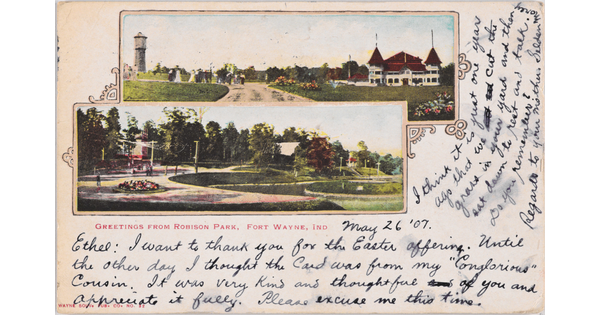 GREETINGS FROM ROBISON PARK, FORT WAYNE, IND
May 26 '07.
Ethel: I want to thank you for the Easter offering. Until
the other day I thought the Card was from my "Conglorious"
Cousin. It was very kind and thoughtful of you and
appreciate it fully. Please excuse me this time.
I think it is just one years
ago that we cut the
grass in your yard and then
sat down to rest and talk.
Do you remember?
Regards to your mother
WAYNE SOUV. PUB. CO. NO.